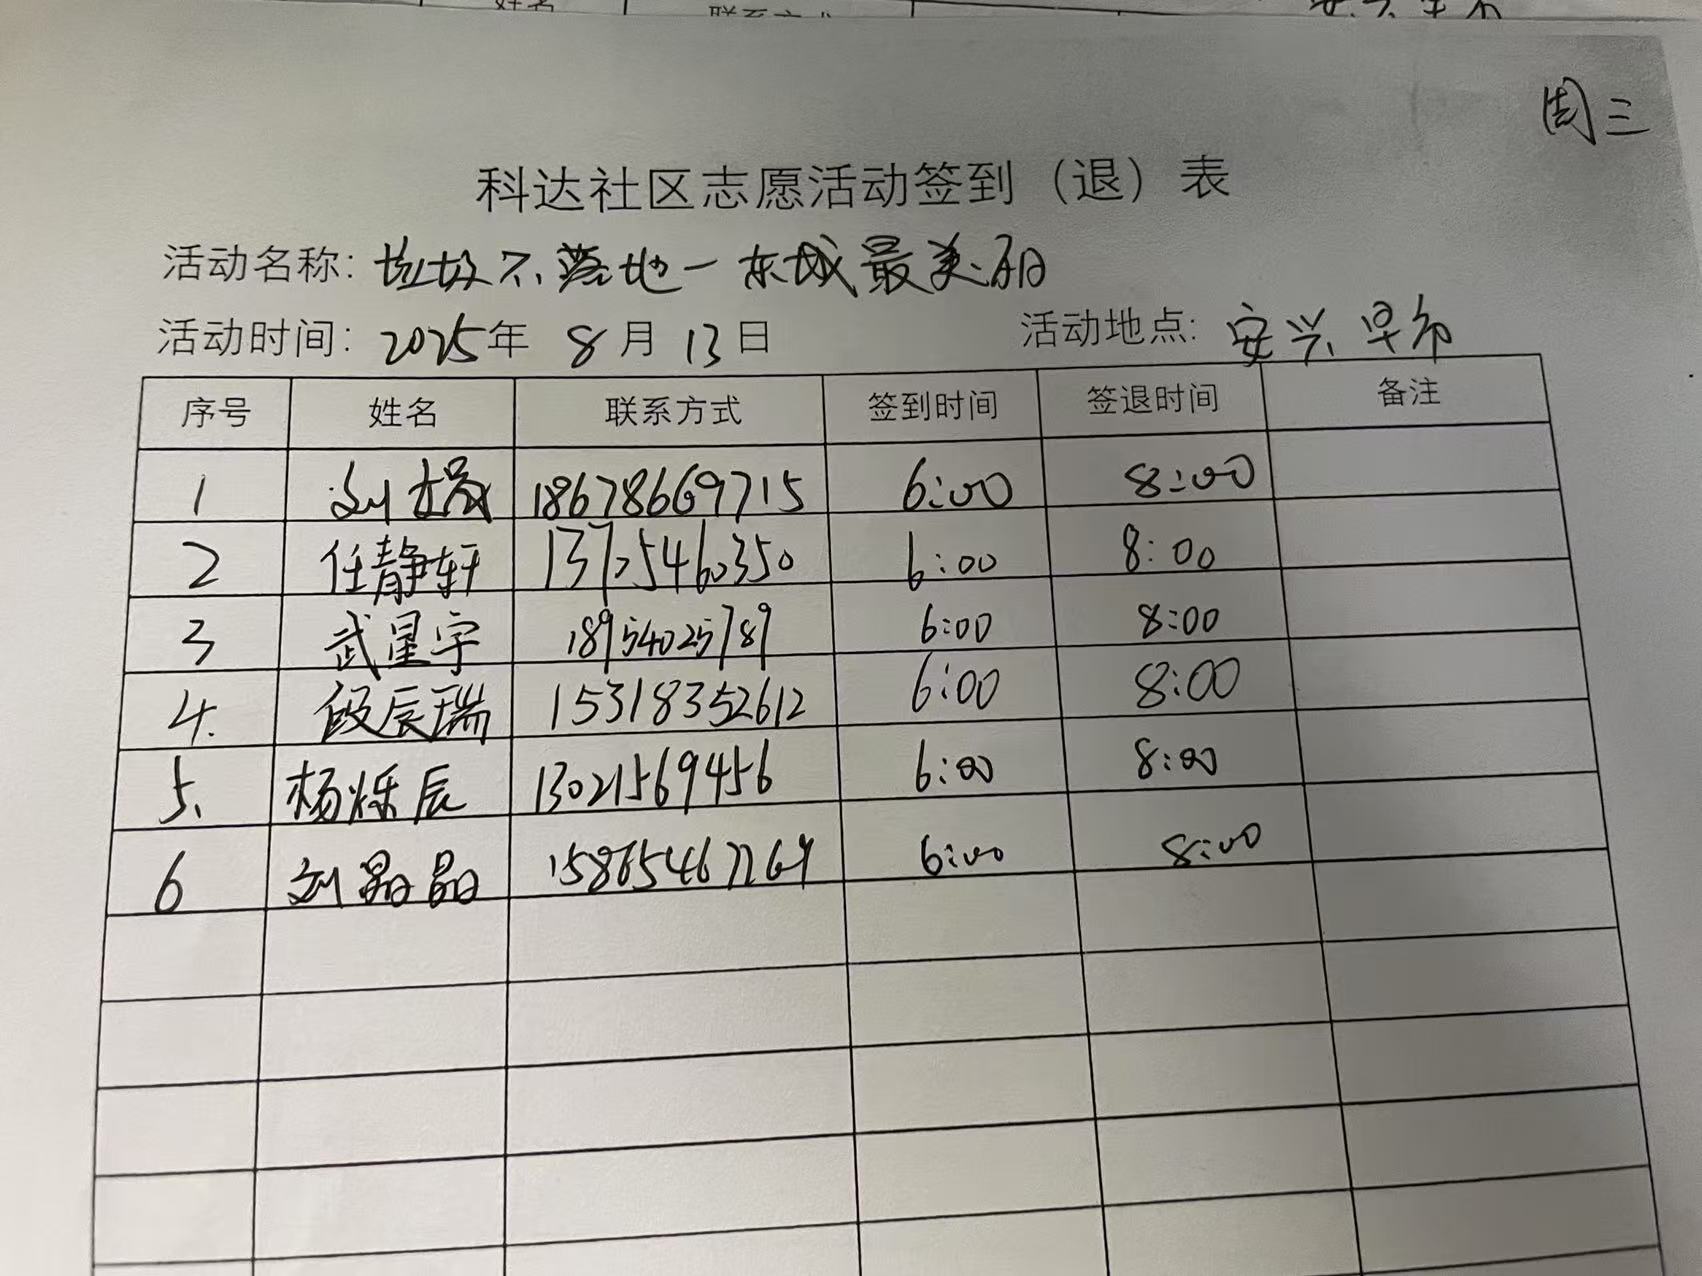 姓名 联系方式
周三
科达社区志愿活动签到（退）表
活动名称: 垃圾不落地一东城最美丽
活动时间: 2025年 8月 13日 活动地点: 安兴早市
序号 姓名 联系方式 签到时间 签退时间 备注
1 刘 18678669715 6:00 8:00
2 任静轩 13725460350 6:00 8:00
3 武星宇 18954025789 6:00 8:00
4. 段辰瑞 15318352612 6:00 8:00
5. 杨烁辰 13021569456 6:00 8:00
6 刘晶晶 6:00 8:00